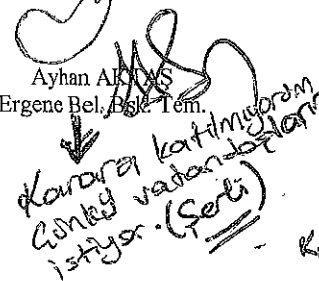 Ayhan AKTAŞ
Ergene Bel. Bşk. Tem.
Karara katılmıyorum
Çünkü vatandaşların
istiyor. (Şerh)